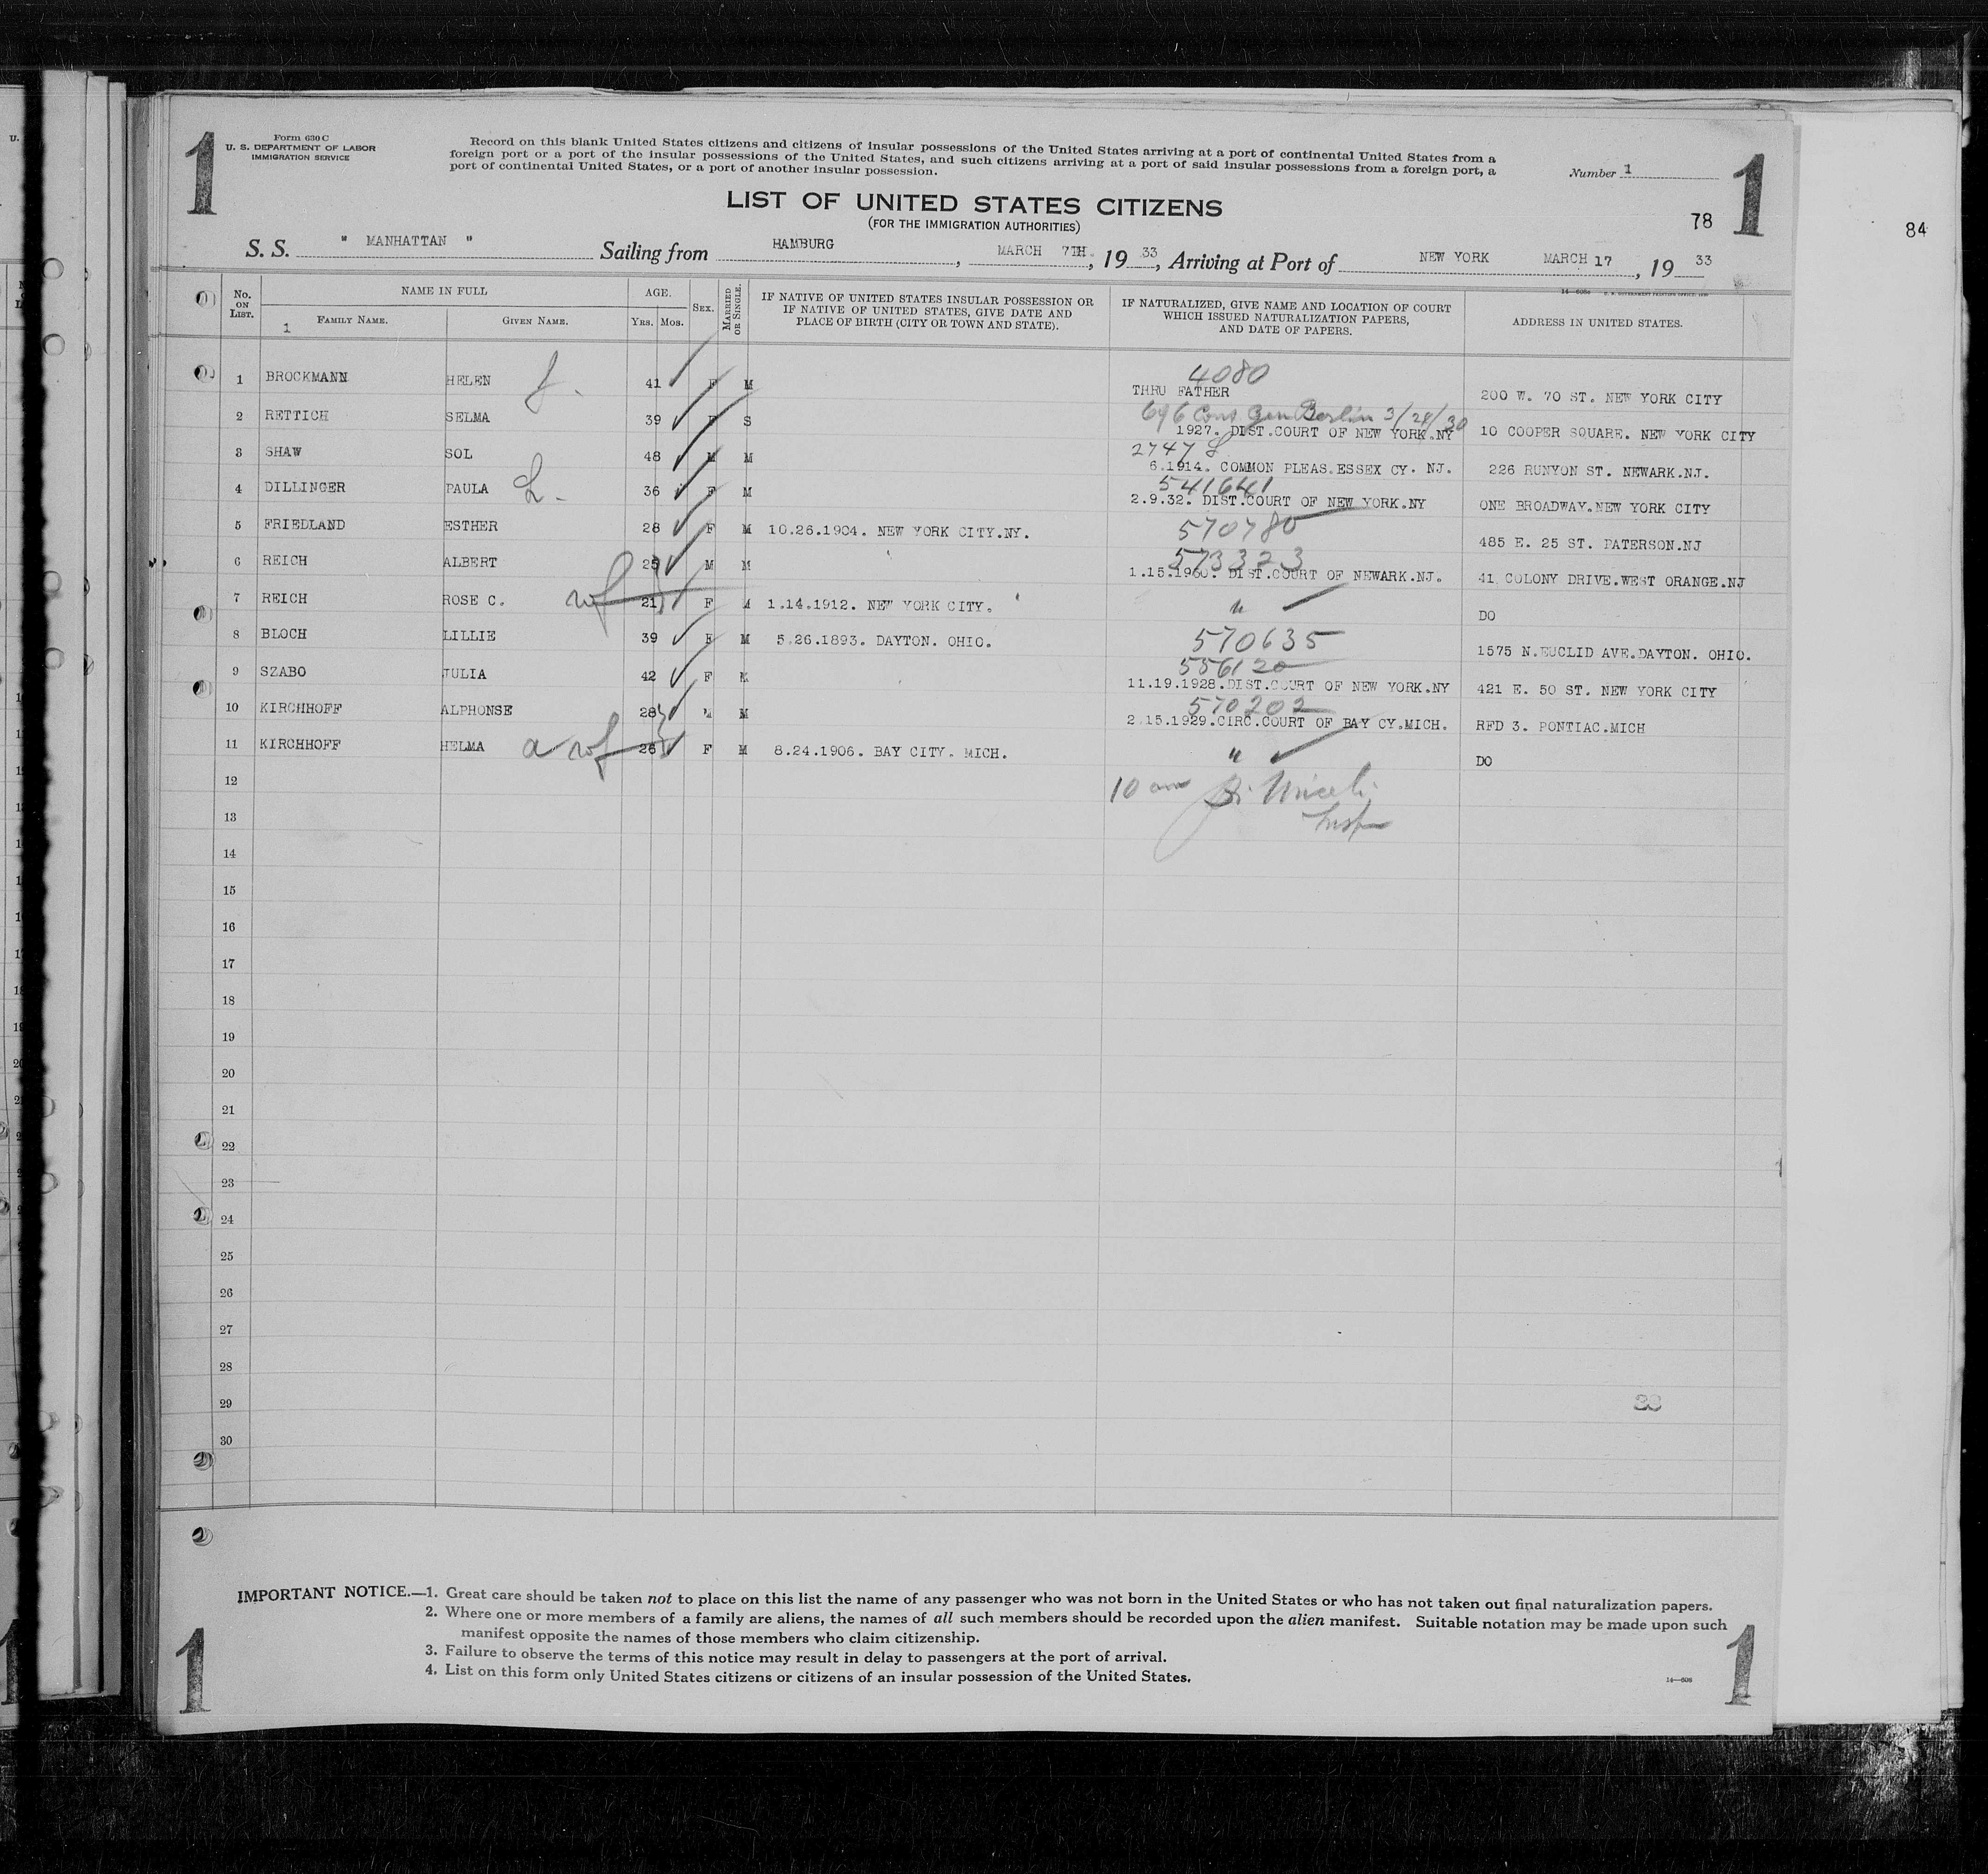 1
Form 630 C
U. S. DEPARTMENT OF LABOR
IMMIGRATION SERVICE
Record on this blank United States citizens and citizens of insular possessions of the United States arriving at a port of continental United States from a
foreign port or a port of the insular possessions of the United States, and such citizens arriving at a port of said insular possessions from a foreign port, a
port of continental United States, or a port of another insular possession.
Number 1
1
LIST OF UNITED STATES CITIZENS
(FOR THE IMMIGRATION AUTHORITIES)
78
84
S. S. " MANHATTAN " Sailing from HAMBURG, MARCH 7TH., 1933, Arriving at Port of NEW YORK MARCH 17, 1933
No. ON LIST. NAME IN FULL AGE. SEX. MARRIED OR SINGLE. IF NATIVE OF UNITED STATES INSULAR POSSESSION OR IF NATIVE OF UNITED STATES, GIVE DATE AND PLACE OF BIRTH (CITY OR TOWN AND STATE). IF NATURALIZED, GIVE NAME AND LOCATION OF COURT WHICH ISSUED NATURALIZATION PAPERS, AND DATE OF PAPERS. ADDRESS IN UNITED STATES.
1 FAMILY NAME. GIVEN NAME. YRS. MOS.
4080
1 BROCKMANN HELEN 41 F M THRU FATHER 200 W. 70 ST. NEW YORK CITY
Cons Gen Berlin 3/24/30
2 RETTICH SELMA 39 F S 1927. DIST.COURT OF NEW YORK.NY 10 COOPER SQUARE. NEW YORK CITY
2747
3 SHAW SOL 48 M M 6.1914. COMMON PLEAS.ESSEX CY. NJ. 226 RUNYON ST. NEWARK.NJ.
541641
4 DILLINGER PAULA 36 F M 2.9.32. DIST.COURT OF NEW YORK.NY ONE BROADWAY.NEW YORK CITY
5 FRIEDLAND ESTHER 28 F M 10.26.1904. NEW YORK CITY.NY. 570780 485 E. 25 ST. PATERSON.NJ
573323
6 REICH ALBERT 25 M M 1.15.1960. DIST.COURT OF NEWARK.NJ. 41 COLONY DRIVE.WEST ORANGE.NJ
7 REICH ROSE C. wf 21 F M 1.14.1912. NEW YORK CITY. " DO
8 BLOCH LILLIE 39 F M 5.26.1893. DAYTON. OHIO. 570635 1575 N.EUCLID AVE.DAYTON. OHIO.
556120
9 SZABO JULIA 42 F M 11.19.1928.DIST.COURT OF NEW YORK.NY 421 E. 50 ST. NEW YORK CITY
570202
10 KIRCHHOFF ALPHONSE 28 M M 2.15.1929.CIRC.COURT OF BAY CY.MICH. RFD 3. PONTIAC.MICH
11 KIRCHHOFF HELMA a wf 26 F M 8.24.1906. BAY CITY. MICH. " DO
12 10 am
13 Insp
14
15
16
17
18
19
20
21
22
23
24
25
26
27
28
29
30
IMPORTANT NOTICE.—1. Great care should be taken not to place on this list the name of any passenger who was not born in the United States or who has not taken out final naturalization papers.
2. Where one or more members of a family are aliens, the names of all such members should be recorded upon the alien manifest. Suitable notation may be made upon such
manifest opposite the names of those members who claim citizenship.
3. Failure to observe the terms of this notice may result in delay to passengers at the port of arrival.
4. List on this form only United States citizens or citizens of an insular possession of the United States.
14—608
1
1